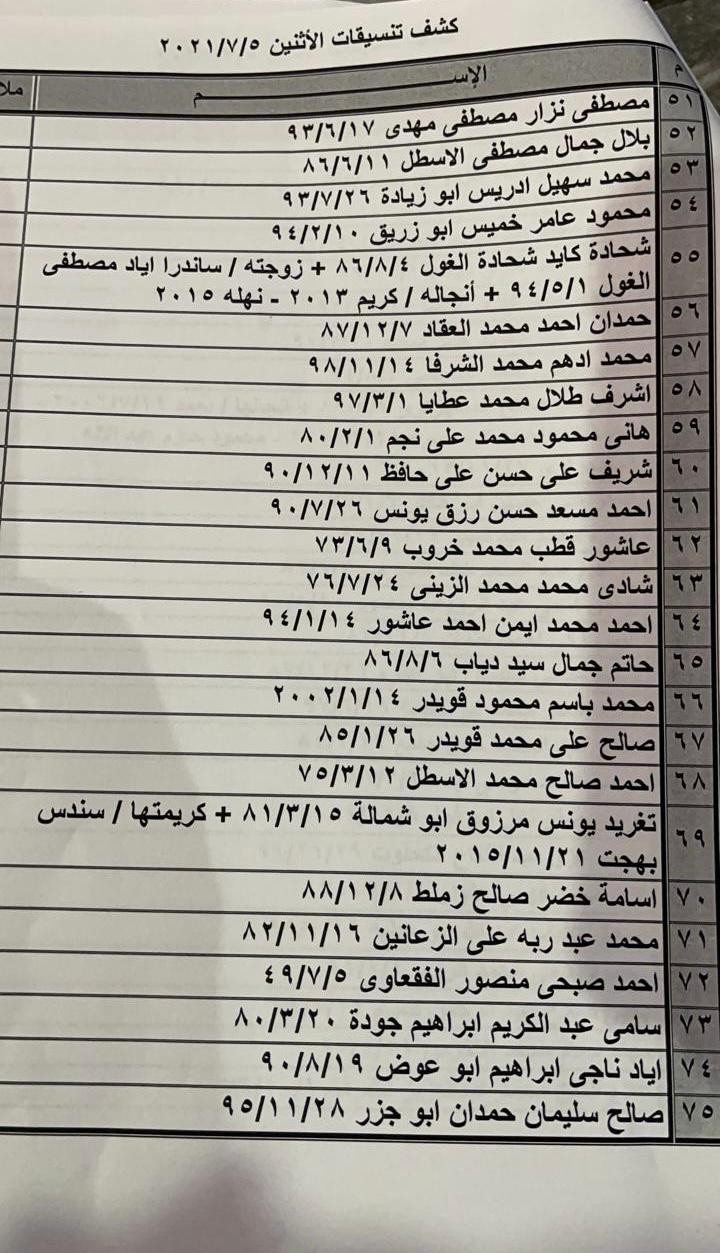 كشف تنسيقات الأثنين ٢٠٢١/٧/٥
م الإســـــــــم ملا
٥١ مصطفى نزار مصطفى مهدى ٩٣/٦/١٧
٥٢ بلال جمال مصطفى الاسطل ٨٦/٦/١١
٥٣ محمد سهيل ادريس ابو زيادة ٩٣/٧/٢٦
٥٤ محمود عامر خميس ابو زريق ٩٤/٢/١٠
٥٥ شحادة كايد شحادة الغول ٨٦/٨/٤ + زوجته / ساندرا اياد مصطفى
الغول ٩٤/٥/١ + أنجاله / كريم ٢٠١٣ - نهله ٢٠١٥
٥٦ حمدان احمد محمد العقاد ٨٧/١٢/٧
٥٧ محمد ادهم محمد الشرفا ٩٨/١١/١٤
٥٨ اشرف طلال محمد عطايا ٩٧/٣/١
٥٩ هانى محمود محمد على نجم ٨٠/٢/١
٦٠ شريف على حسن على حافظ ٩٠/١٢/١١
٦١ احمد مسعد حسن رزق يونس ٩٠/٧/٢٦
٦٢ عاشور قطب محمد خروب ٧٣/٦/٩
٦٣ شادى محمد محمد الزينى ٧٦/٧/٢٤
٦٤ احمد محمد ايمن احمد عاشور ٩٤/١/١٤
٦٥ حاتم جمال سيد دياب ٨٦/٨/٦
٦٦ محمد باسم محمود قويدر ٢٠٠٢/١/١٤
٦٧ صالح على محمد قويدر ٨٥/١/٢٦
٦٨ احمد صالح محمد الاسطل ٧٥/٣/١٢
٦٩ تغريد يونس مرزوق ابو شمالة ٨١/٣/١٥ + كريمتها / سندس
بهجت ٢٠١٥/١١/٢١
٧٠ اسامة خضر صالح زملط ٨٨/١٢/٨
٧١ محمد عبد ربه على الزعانين ٨٢/١١/١٦
٧٢ احمد صبحى منصور الفقعاوى ٤٩/٧/٥
٧٣ سامى عبد الكريم ابراهيم جودة ٨٠/٣/٢٠
٧٤ اياد ناجى ابراهيم ابو عوض ٩٠/٨/١٩
٧٥ صالح سليمان حمدان ابو جزر ٩٥/١١/٢٨